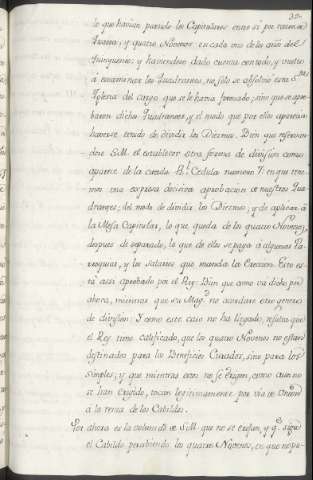 32
lo que havian partido los Capitulares entre si por razon de
Gruesa, y quatro Novenos en cada uno de los años del
Quinquenio; y haviendose dado cuenta con todo, y vuelto
á examinar los Quadrantes, no solo se absolvio esta Sta
Iglesia del cargo que se le havia formado; sino que se apro-
baron dichos Quadrantes, y el modo que por ellos aparecia
haverse tenido de dividir los Diezmos. Bien que reservan-
dose S.M. el establecer otra forma de division como
aparece de la citada Rl Cedula numero 7. en que tene-
mos una expresa decisiva aprobacion de nuestros Qua-
drantes; del modo de dividir los Diezmos; y de aplicar á
la Mesa Capitular, lo que queda de los quatro Novenos,
despues de separado, lo que de ellos se paga á algunas Pa-
rroquias, y los salarios que manda la Ereccion. Esto es-
tá assi aprobado por el Rey. Bien que como va dicho por
ahora, mientras que su Magd. no acordare otro genero
de division; Y como este caso no ha llegado, resulta que
el Rey tiene calificado, que los quatro Novenos no estan
destinados para los Beneficios Curados, sino para los
simples; y que mientras estos no se erigen, como aun no
se han erigido, tocan legitimamente por via de
á la renta de los Cabildos.
Por ahora es la voluntad de S.M. que no se erijan, y q.e siga
el Cabildo percibiendo los quatro Novenos, en que no pa-